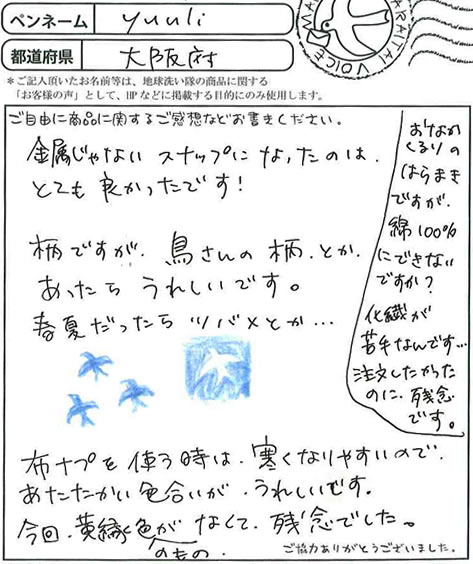 ペンネーム yuuli
都道府県 大阪府
＊ご記入頂いたお名前等は、地球洗い隊の商品に関する
「お客様の声」として、HPなどに掲載する目的にのみ使用します。
ご自由に商品に関するご感想などお書きください。
金属じゃない スナップに なったのは、
とても 良かったです！
柄ですが、鳥さんの 柄、とか、
あったら うれしいです。
春夏だったら ツバメとか…
布ナプを 使う時は、寒くなりやすいので、
あたたかい 色合いが、うれしいです。
今回、黄緑色が なくて、残念でした。
のもの
おなか
くるりの
はらまき
ですが、
綿100%
にできない
ですか？
化繊が
苦手なんです…
注文したかった
のに、残念
です。
ご協力ありがとうございました。
VOICE